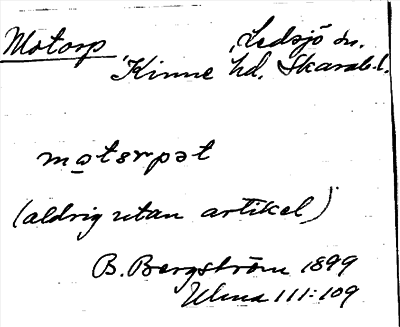 Motorp
Ledsjö sn.
Kinne hd. Skarab.l.
motərpət
(aldrig utan artikel)
B. Bergström 1899
Ulma 111:109